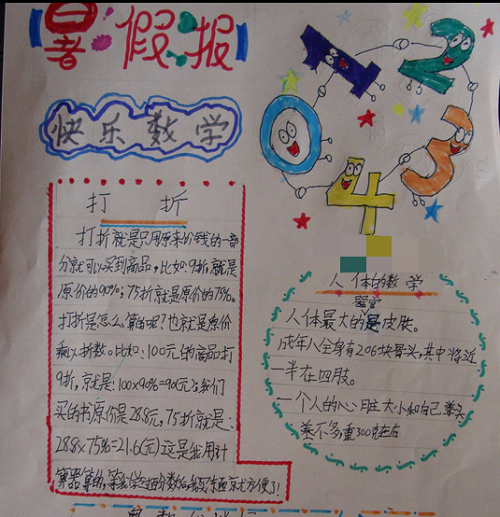 暑假报
快乐数学
1
2
0
3
4
打 折
打折就是只用原来价钱的一部
分就可以买到商品,比如:9折就是
原价的90%;75折就是原价的75%。
打折是怎么算的呢?也就是原价
乘以折数。比如:100元的商品打
9折,就是:100×90%=90(元)
买的书原价是28.8元,75折就是:
28.8×75%=21.6(元)这是我用计
算器算的,
人体的数学
器官
人体最大的是皮肤。
成年人全身有206块骨头,其中将近
一半在四肢。
一个人的心脏大小和自己拳头
差不多重300克左右